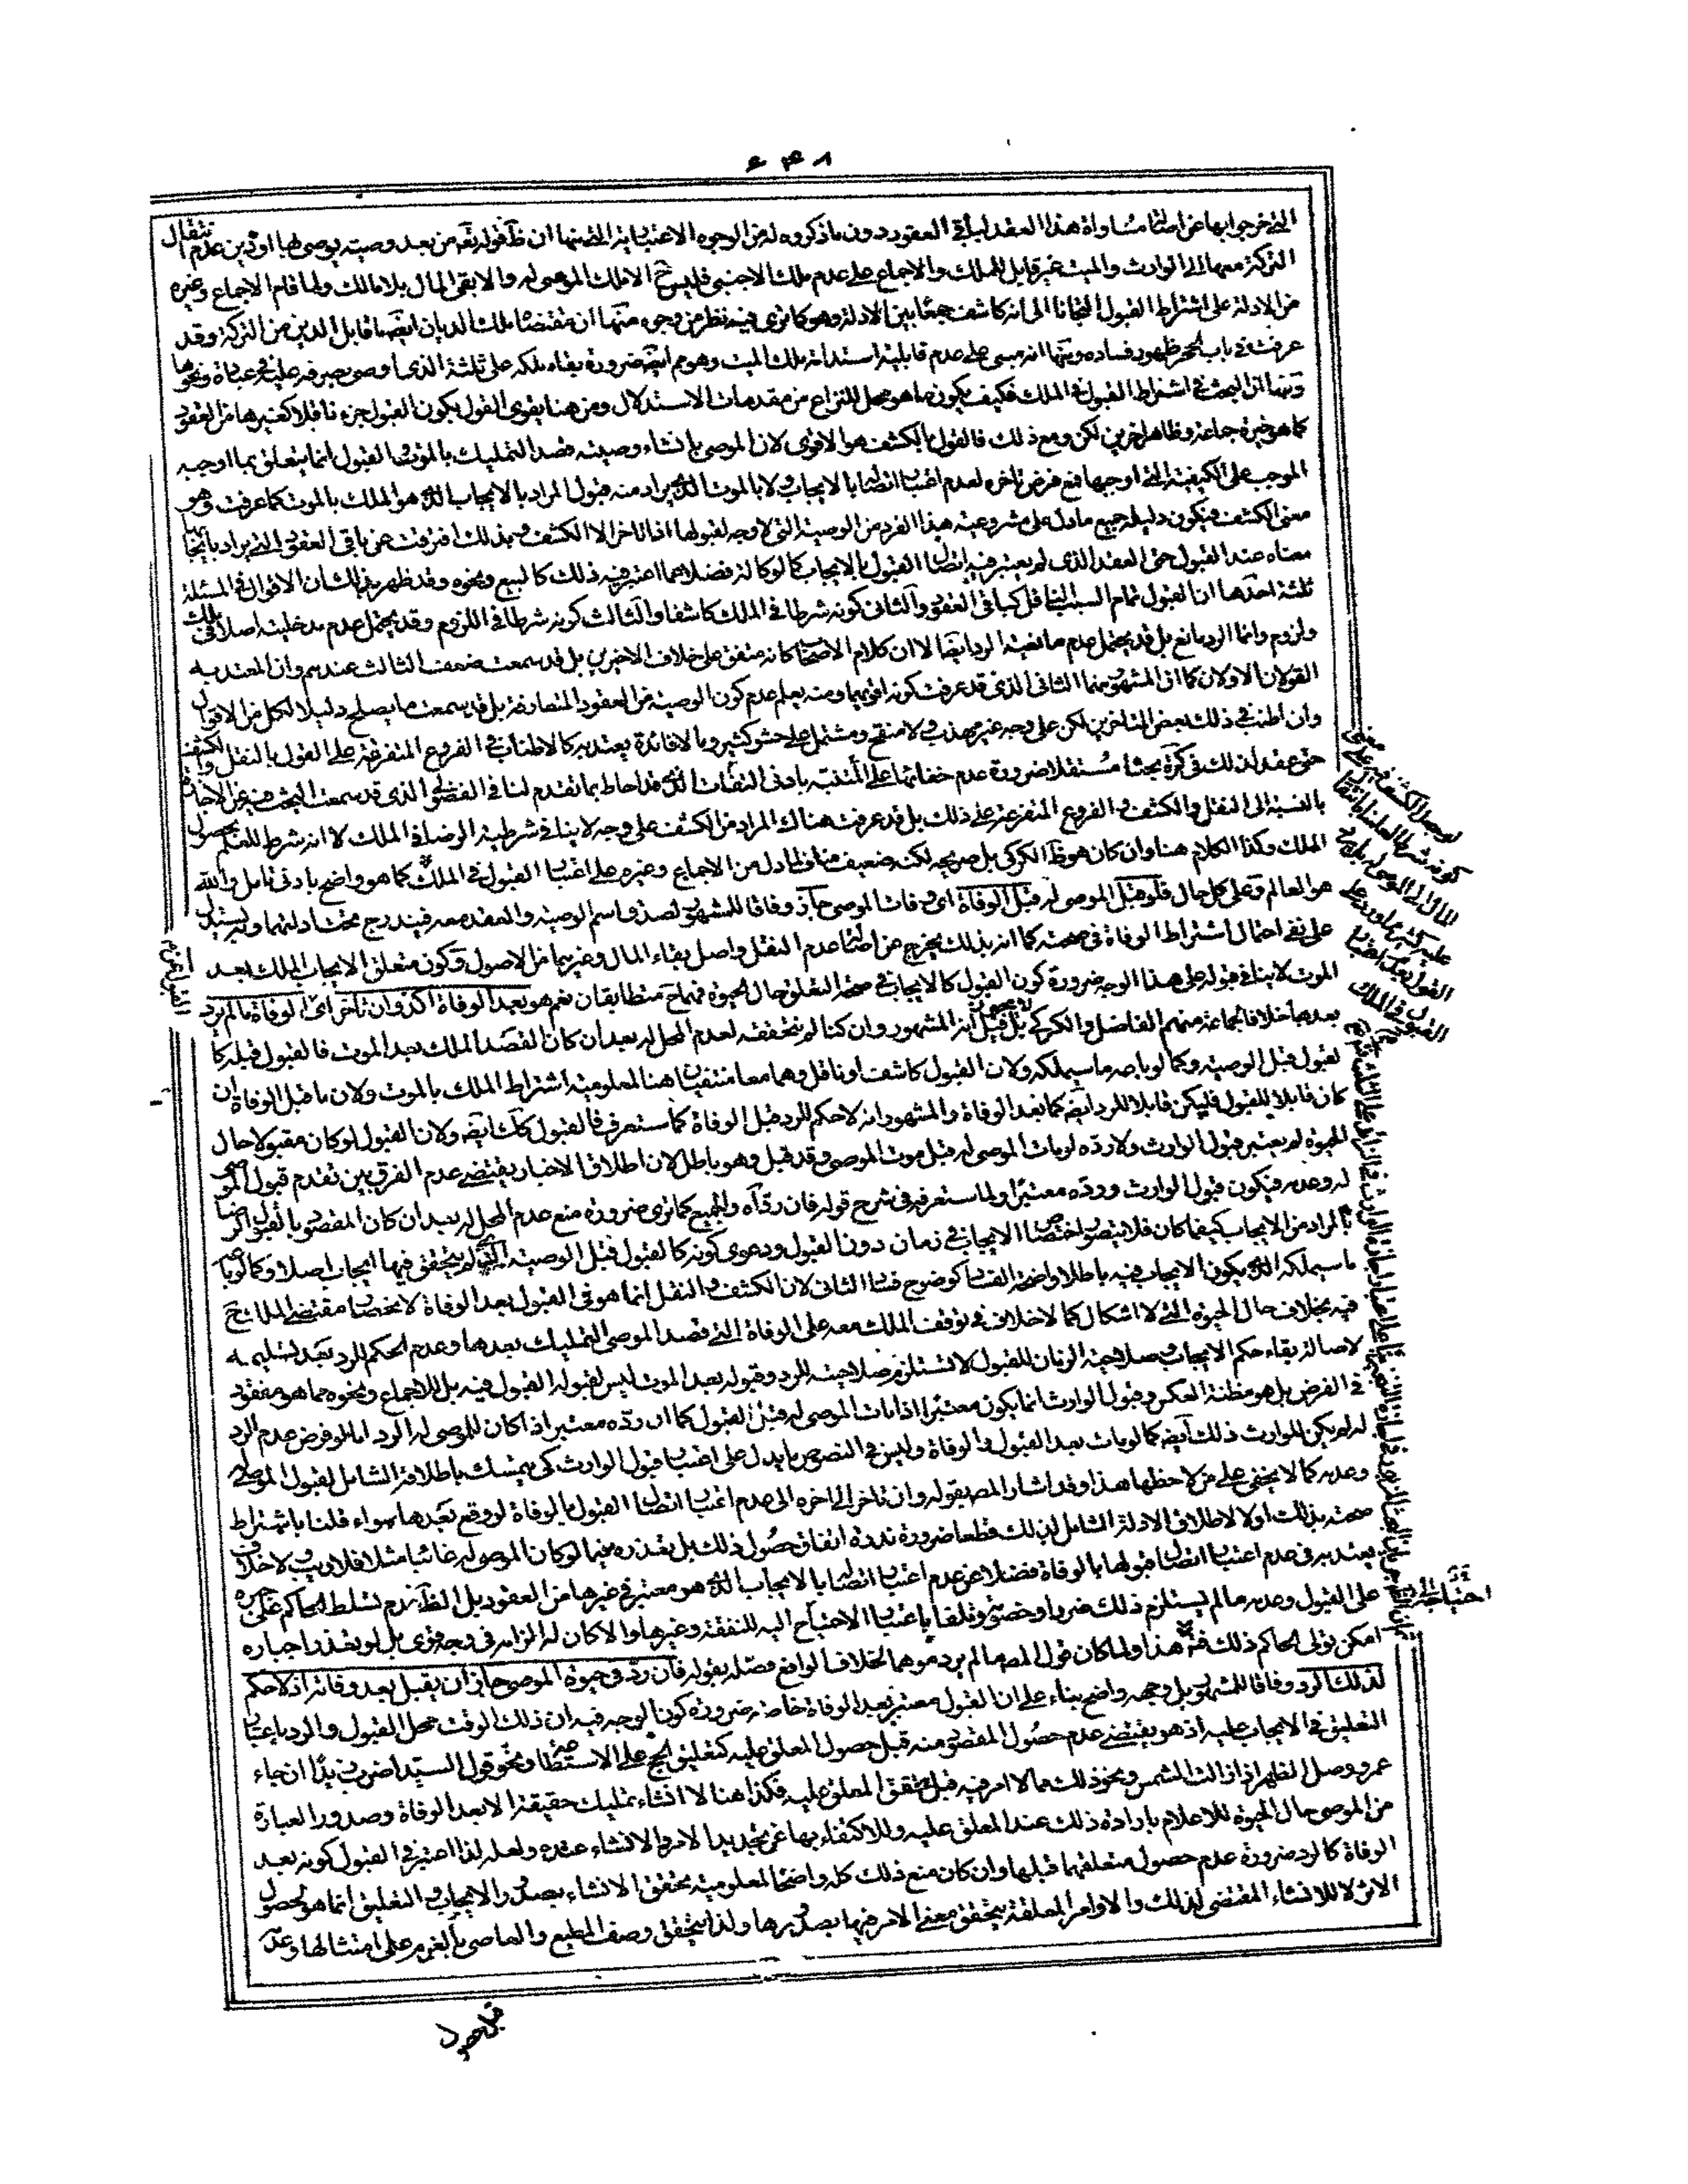 التي خرجوا بها عن اصالة مساواة هذا العقد لباقي العقود دون ما ذكروه له من الوجوه الاعتبارية التي منها ان ظ قوله تع من بعد وصية يوصى بها او دين عدم انتقال
التركة معهما الى الوارث والميت غير قابل للملك والاجماع على عدم ملك الاجنبي فليس ح الا ملك الموصى له والا بقي المال بلا مالك ولما قام الاجماع وغيره
من الادلة على اشتراط القبول التجأنا الى انه كاشف جمعا بين الادلة وهو كما ترى فيه نظر من وجوه منها ان مقتضاه ملك الديان ايضا قابل الدين من التركة وقد
عرفت في باب الحجر ظهور فساده ومنها انه مبني على عدم قابلية استدامة ملك الميت وهو مم ايضا ضرورة بقاء ملكه على ثلثه الذي اوصى بصرفه عليه في عبادة ونحوها
ومنها ان البحث في اشتراط القبول في الملك فكيف يكون ما هو محل للنزاع من مقدمات الاستدلال ومن هنا يقوى القول بكون القبول جزء ناقلا كغيرها من العقود
كما هو خيرة جماعة وظاهر اخرين لكن ومع ذلك فالقول بالكشف هو الاقوى لان الموصي بانشاء وصيته قصد التمليك بالموت والقبول انما يتعلق بما اوجبه
الموجب على الكيفية التي اوجبها فمع فرض تاخره لعدم اعتبار اتصاله بالايجاب ولا بالموت الذي يراد منه قبول المراد بالايجاب الذي هو الملك بالموت كما عرفت وهو
معنى الكشف فيكون دليله جميع ما دل على مشروعية هذا الفرد من الوصية التي لا وجه لقبولها اذا تاخر الا الكشف وبذلك افترقت عن باقي العقود التي يراد بايجابها
معناه عند القبول حتى العقد الذي لم يعتبر فيه اتصال القبول بالايجاب كالوكالة فضلا عما اعتبر فيه ذلك كالبيع ونحوه وقد ظهر بذلك ان الاقوال في المسئلة
ثلثة احدها ان القبول تمام السبب الناقل كباقي العقود والثاني كونه شرطا في الملك كاشفا والثالث كونه شرطا في اللزوم وقد يحتمل عدم مدخليته اصلا في ملك
ولزوم وانما الرد مانع بل قد يحتمل عدم مانعية الرد ايضا الا ان كلام الاصحاب كانه متفق على خلاف الاخيرين بل قد سمعت ضعف الثالث عندهم وان المعتد به
القولان الاولان كما ان المشهور منهما الثاني الذي قد عرفت كونه اقويهما ومنه يعلم عدم كون الوصية من العقود المتعارفة بل قد سمعت ما يصلح دليلا لكل من الاقوال
وان اطنب في ذلك بعض المتاخرين لكن على وجه غير مهذب ولا منقح ومشتمل على حشو كثير وما لا فائدة يعتد به كالاطناب في الفروع المتفرعة على القول بالنقل والكشف
حتى عقد لذلك في كرة بحثا مستقلا ضرورة عدم خفائها على المتنبه بادنى التفات الذي قد احاط بما تقدم لنا في الفضولي الذي قد سمعت البحث فيه عن الاجازة
بالنسبة الى النقل والكشف والفروع المتفرعة على ذلك بل قد عرفت هناك المراد من الكشف على وجه لا ينافي شرطية الرضا في الملك لا انه شرط للعلم بحصول
الملك وكذا الكلام هنا وان كان هو ظ الكركي بل صريحه لكنه ضعيف مناف لما دل من الاجماع وغيره على اعتبار القبول في الملك كما هو واضح بادنى تامل والله
هو العالم وعلى كل حال فلو قبل الموصى له قبل الوفاة اي وفاة الموصي جاز وفاقا للمشهور لصدق اسم الوصية والعقد معه فيندرج تحت ادلتهما وليس يدل
على نفي احتمال اشتراط الوفاة في صحته كما انه بذلك يخرج عن اصالة عدم النقل واصل بقاء المال وغيرهما من الاصول وكون متعلق الايجاب الملك بعد
الموت لا ينافي قبوله على هذا الوجه ضرورة كون القبول كالايجاب في صحة التعليق حال الحيوة فهما ح متطابقان نعم هو بعد الوفاة اكد وان تاخر اي الوفاة ما لم يرد
بعدها خلافا لجماعة منهم الفاضل والكركي بل قيل انه المشهور وان كنا لم نتحققه لعدم المحل له بعد ان كان القصد الملك بعد الموت فالقبول قبله كا
لقبول قبل الوصية وكما لو باعه ما سيملكه ولان القبول كاشف او ناقل وهما معا منتفيان هنا لمعلومية اشتراط الملك بالموت ولان ما قبل الوفاة ان
كان قابلا للقبول فليكن قابلا للرد ايضا كما بعد الوفاة والمشهور انه لا حكم للرد قبل الوفاة كما ستعرف فالقبول كك ايضا ولان القبول لو كان مقبولا حال
الحيوة لم يعتبر قبول الوارث ولا رده لو مات الموصى له قبل موت الموصي وقد قبل وهو باطل لان اطلاق الاخبار يقتضي عدم الفرق بين تقدم قبول الموصى
له وعدمه فيكون قبول الوارث ورده معتبرا ولما ستعرفه في شرح قوله فان رد اه والجميع كما ترى ضرورة منع عدم المحل له بعد ان كان المقصود بالقبول الرضا
بالمراد من الايجاب كيفما كان فلا يتصور اختصاص الايجاب في زمان دون القبول ودعوى كونه كالقبول قبل الوصية التي لم يتحقق فيها ايجاب اصلا وكما لو باعه
ما سيملكه الذي يكون الايجاب فيه باطلا واضحة الفساد كوضوح فساد الثاني لان الكشف والنقل انما هو في القبول بعد الوفاة لانحصار مقتضى الملك ح
فيه بخلاف حال الحيوة التي لا اشكال كما لا خلاف في توقف الملك معه على الوفاة التي قصد الموصي التمليك بعدها وعدم الحكم للرد بعد تسليمه
لاصالة بقاء حكم الايجاب وصلاحية الزمان للقبول لا تستلزم صلاحيته للرد وقبوله بعد الموت ليس لقبوله القبول فيه بل للاجماع ونحوه مما هو مفقود
في الفرض بل هو مظنة العكس وقبول الوارث انما يكون معتبرا اذا مات الموصى له قبل القبول كما ان رده معتبر اذا كان للموصى له الرد اما لو فرض عدم الرد
له لم يكن للوارث ذلك ايضا كما لو مات بعد القبول والوفاة وليس في النصوص ما يدل على اعتبار قبول الوارث كي يتمسك باطلاقه الشامل لقبول الموصى له
وعدمه كما لا يخفى على من لاحظها هذا وقد اشار المص بقوله وان تاخر الى اخره الى عدم اعتبار اتصال القبول بالوفاة لو وقع بعدها سواء قلنا باشتراط
صحته بذلك اولا لاطلاق الادلة الشامل لذلك قطعا ضرورة ندرة اتفاق حصول ذلك بل تعذره فيما لو كان الموصى له غائبا مثلا فلا ريب ولا خلاف
يعتد به في عدم اعتبار اتصال قبولها بالوفاة فضلا عن عدم اعتبار اتصاله بالايجاب الذي هو معتبر في غيرها من العقود بل الظ عدم تسلط الحاكم على جبره
على القبول وعدمه ما لم يستلزم ذلك ضررا وخصوصا وتلفا باعتبار الاحتياج اليه للنفقة وغيرها والا كان له الزامه في وجه قوي بل لو تعذر اجباره
امكن تولي الحاكم ذلك هذا ولما كان قول المص ما لم يرد موهما لخلاف الواقع فصله بقوله فان رد في حيوة الموصي جاز ان يقبل بعد وفاته اذ لا حكم
لذلك الرد وفاقا للمشهور بل وجهه واضح بناء على ان القبول معتبر بعد الوفاة خاصة ضرورة كون الوجه فيه ان ذلك الوقت محل القبول والرد باعتبار
التعليق في الايجاب عليه اذ هو يقتضي عدم حصول المقصود منه قبل حصول المعلق عليه كتعليق الحج على الاستطاعة ونحو قول السيد اضرب زيدا ان جاء
عمرو وصل الظهر اذا زالت الشمس ونحو ذلك مما لا امر فيه قبل تحقق المعلق عليه فكذا هنا لا انشاء تمليك حقيقة الا بعد الوفاة وصدور العبارة
من الموصي حال الحيوة للاعلام بارادة ذلك عند المعلق عليه وللاكتفاء بها عن تجديد الامر والانشاء عنده ولعله لذا اعتبر في القبول كونه بعد
الوفاة كالرد ضرورة عدم حصول متعلقهما قبلها وان كان منع ذلك كله واضحا لمعلومية تحقق الانشاء بصدور الايجاب والتعليق انما هو لحصول
الاثر لا للانشاء المقتضي لذلك والاوامر المعلقة يتحقق معنى الامر فيها بصدورها ولذا يتحقق وصف المطيع والعاصي بالعزم على امتثالها وعدمه